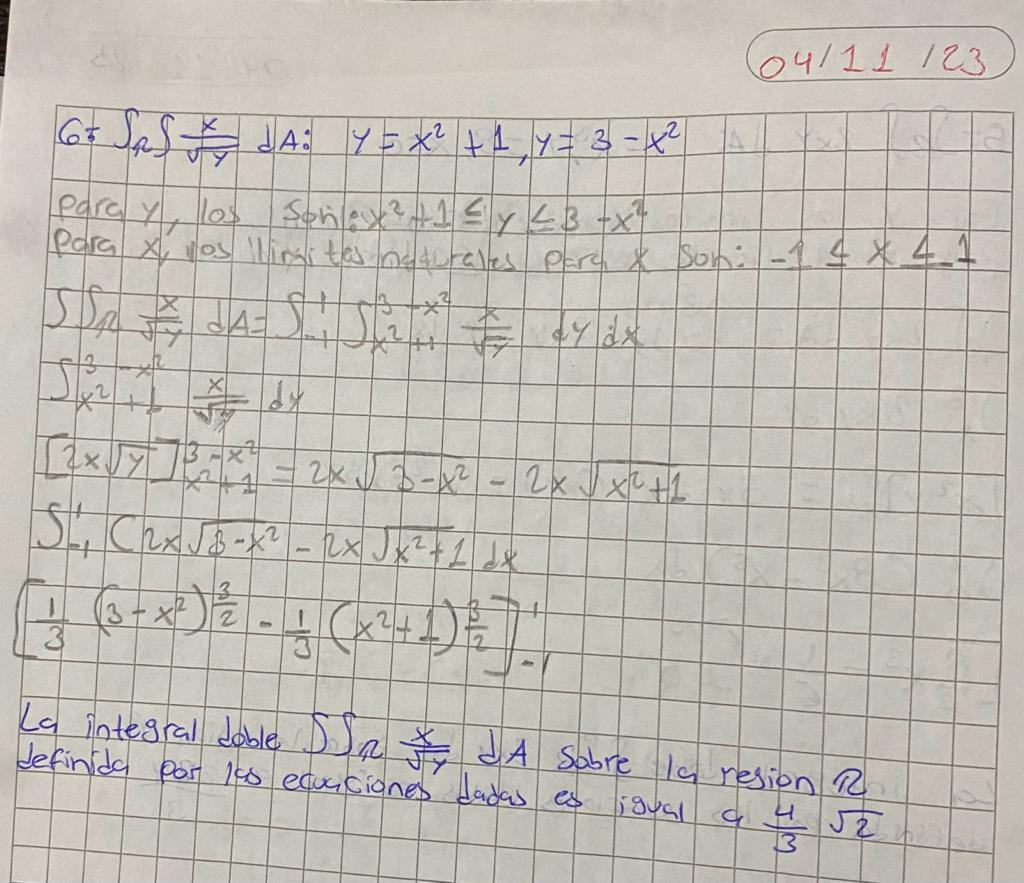 04/11/23
6= ∫R∫ x/√y dA: y = x² + 1, y = 3 - x²
para y, los son: x² + 1 ≤ y ≤ 3 - x²
para x, los limites naturales para x son: -1 ≤ x ≤ 1
∫∫R x/√y dA = ∫₋₁¹ ∫_{x²+1}^{3-x²} x/√y dy dx
∫_{x²+1}^{3-x²} x/√y dy
[2x√y]_{x²+1}^{3-x²} = 2x√(3-x²) - 2x√(x²+1)
∫₋₁¹ (2x√(3-x²) - 2x√(x²+1) dx
[1/3 (3-x²)^{3/2} - 1/3 (x²+1)^{3/2}]₋₁¹
La integral doble ∫∫R x/√y dA sobre la resion R
definida por las ecuaciones dadas es igual a 4/3 √2